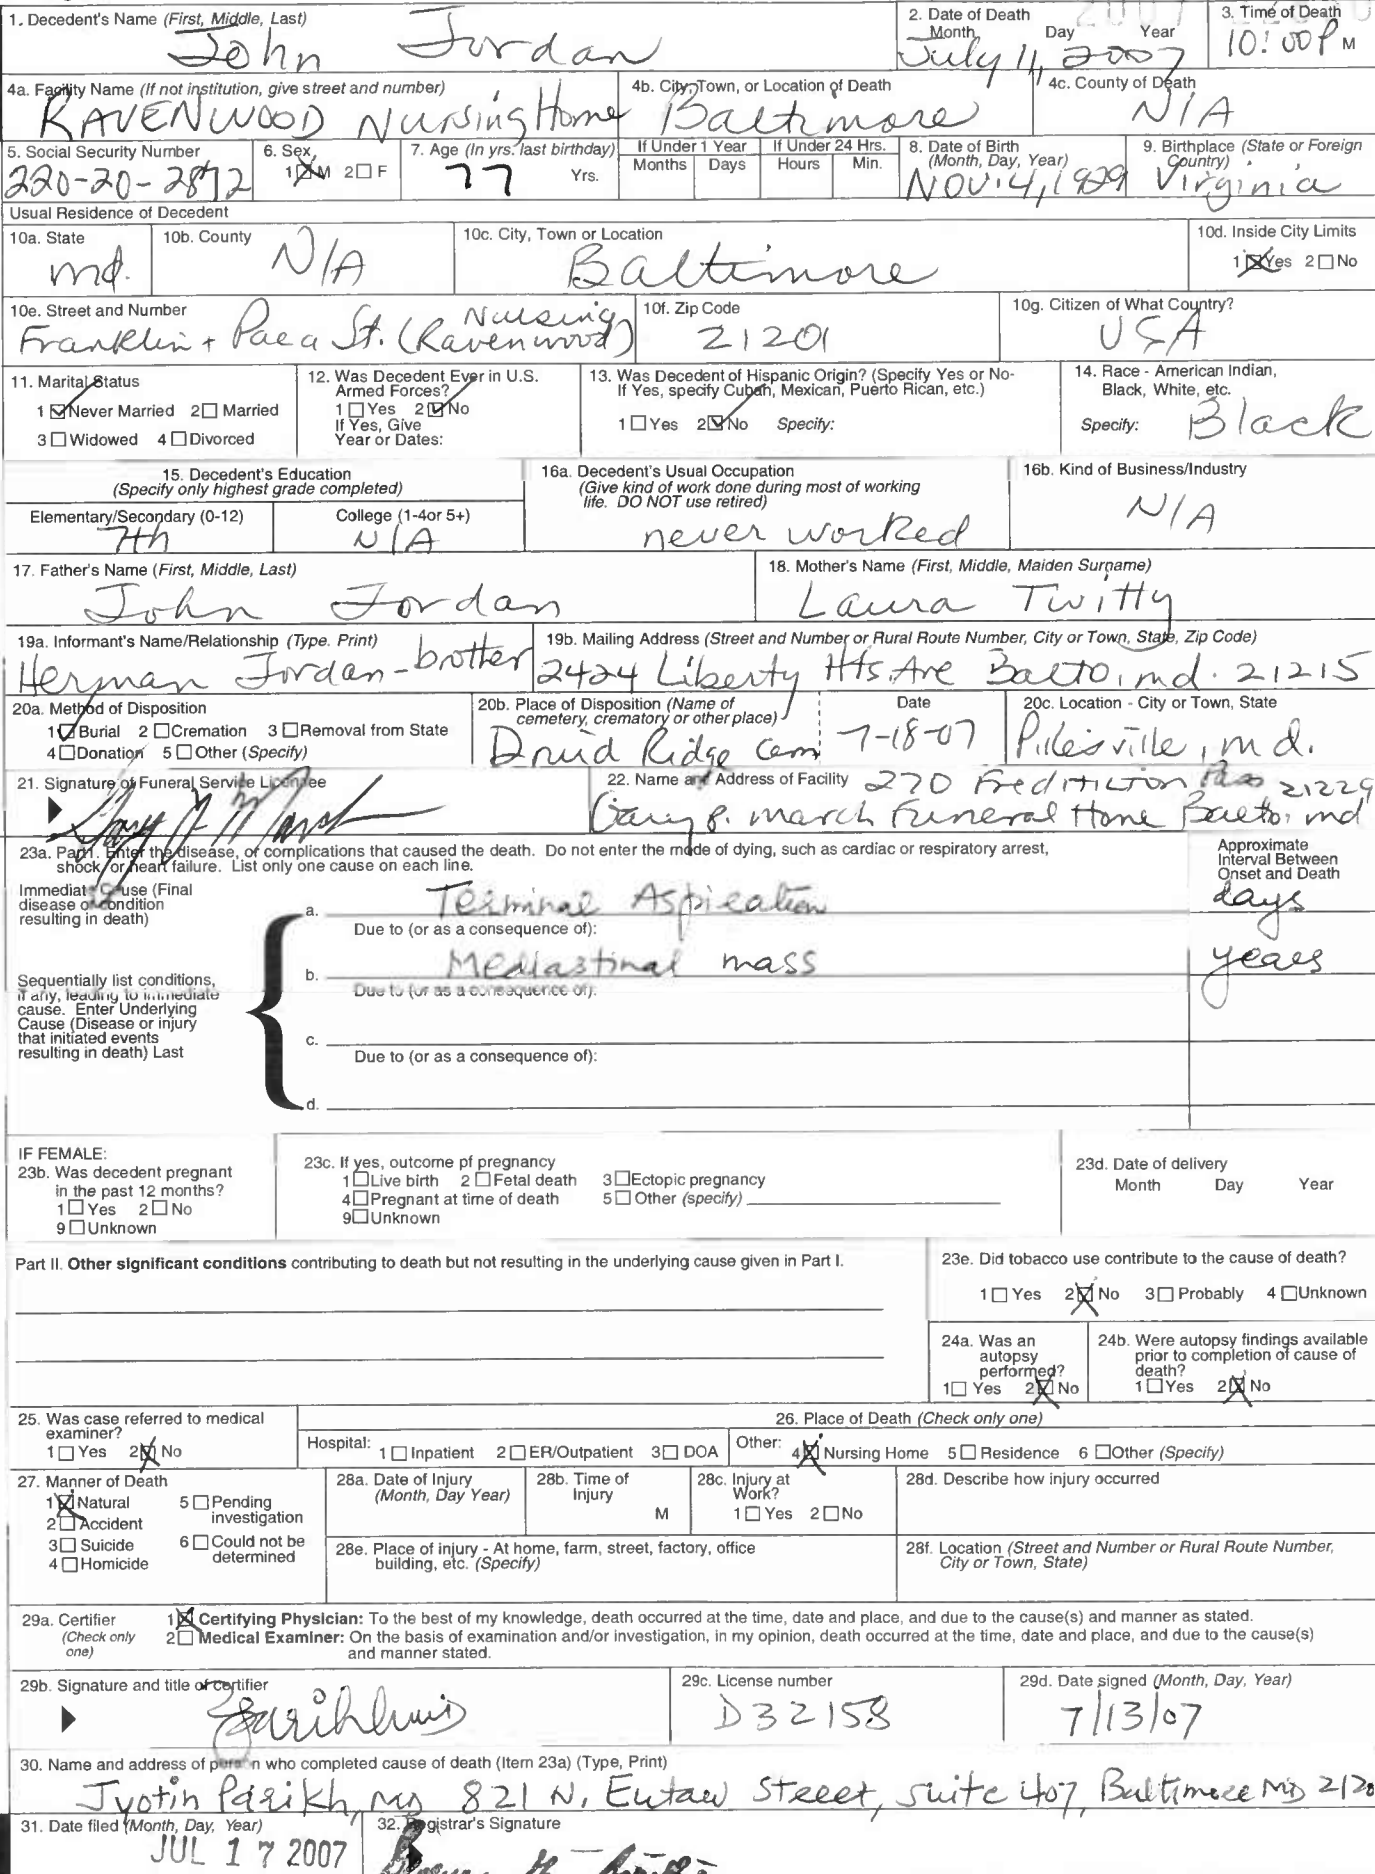 1. Decedent's Name (First, Middle, Last)
John Jordan
2. Date of Death
Month Day Year
July 11, 2007
3. Time of Death
10:00 P M
4a. Facility Name (If not institution, give street and number)
RAVENWOOD Nursing Home
4b. City, Town, or Location of Death
Baltimore
4c. County of Death
N/A
5. Social Security Number
220-20-2872
6. Sex
1☒M 2☐F
7. Age (In yrs. last birthday)
77 Yrs.
If Under 1 Year
Months Days
If Under 24 Hrs.
Hours Min.
8. Date of Birth
(Month, Day, Year)
NOV. 4, 1929
9. Birthplace (State or Foreign
Country)
Virginia
Usual Residence of Decedent
10a. State
md.
10b. County
N/A
10c. City, Town or Location
Baltimore
10d. Inside City Limits
1☒Yes 2☐No
10e. Street and Number
Franklin + Paca St. (Ravenwood) Nursing
10f. Zip Code
21201
10g. Citizen of What Country?
USA
11. Marital Status
1☑Never Married 2☐Married
3☐Widowed 4☐Divorced
12. Was Decedent Ever in U.S.
Armed Forces?
1☐Yes 2☑No
If Yes, Give
Year or Dates:
13. Was Decedent of Hispanic Origin? (Specify Yes or No-
If Yes, specify Cuban, Mexican, Puerto Rican, etc.)
1☐Yes 2☑No Specify:
14. Race - American Indian,
Black, White, etc.
Specify: Black
15. Decedent's Education
(Specify only highest grade completed)
Elementary/Secondary (0-12)
7th
College (1-4or 5+)
N/A
16a. Decedent's Usual Occupation
(Give kind of work done during most of working
life. DO NOT use retired)
never worked
16b. Kind of Business/Industry
N/A
17. Father's Name (First, Middle, Last)
John Jordan
18. Mother's Name (First, Middle, Maiden Surname)
Laura Twitty
19a. Informant's Name/Relationship (Type. Print)
Herman Jordan-brother
19b. Mailing Address (Street and Number or Rural Route Number, City or Town, State, Zip Code)
2424 Liberty Hts. Ave Balto, md. 21215
20a. Method of Disposition
1☑Burial 2☐Cremation 3☐Removal from State
4☐Donation 5☐Other (Specify)
20b. Place of Disposition (Name of
cemetery, crematory or other place)
Druid Ridge Cem
Date
7-18-07
20c. Location - City or Town, State
Pikesville, md.
21. Signature of Funeral Service Licensee
22. Name and Address of Facility 270 Fredhilton Pass 21229
Gary P. March Funeral Home Balto, md
23a. Part I. Enter the disease, or complications that caused the death. Do not enter the mode of dying, such as cardiac or respiratory arrest,
shock, or heart failure. List only one cause on each line.
Approximate
Interval Between
Onset and Death
Immediate Cause (Final
disease or condition
resulting in death)
a. Terminal Aspiration
days
Due to (or as a consequence of):
b. Mediastinal mass
years
Due to (or as a consequence of):
Sequentially list conditions,
if any, leading to immediate
cause. Enter Underlying
Cause (Disease or injury
that initiated events
resulting in death) Last
c.
Due to (or as a consequence of):
d.
IF FEMALE:
23b. Was decedent pregnant
in the past 12 months?
1☐Yes 2☐No
9☐Unknown
23c. If yes, outcome pf pregnancy
1☐Live birth 2☐Fetal death 3☐Ectopic pregnancy
4☐Pregnant at time of death 5☐Other (specify)
9☐Unknown
23d. Date of delivery
Month Day Year
Part II. Other significant conditions contributing to death but not resulting in the underlying cause given in Part I.
23e. Did tobacco use contribute to the cause of death?
1☐Yes 2☒No 3☐Probably 4☐Unknown
24a. Was an
autopsy
performed?
1☐Yes 2☒No
24b. Were autopsy findings available
prior to completion of cause of
death?
1☐Yes 2☒No
25. Was case referred to medical
examiner?
1☐Yes 2☒No
26. Place of Death (Check only one)
Hospital: 1☐Inpatient 2☐ER/Outpatient 3☐DOA
Other: 4☒Nursing Home 5☐Residence 6☐Other (Specify)
27. Manner of Death
1☒Natural
2☐Accident
3☐Suicide
4☐Homicide
5☐Pending
investigation
6☐Could not be
determined
28a. Date of Injury
(Month, Day Year)
28b. Time of
Injury
M
28c. Injury at
Work?
1☐Yes 2☐No
28d. Describe how injury occurred
28e. Place of injury - At home, farm, street, factory, office
building, etc. (Specify)
28f. Location (Street and Number or Rural Route Number,
City or Town, State)
29a. Certifier
(Check only
one)
1☒Certifying Physician: To the best of my knowledge, death occurred at the time, date and place, and due to the cause(s) and manner as stated.
2☐Medical Examiner: On the basis of examination and/or investigation, in my opinion, death occurred at the time, date and place, and due to the cause(s)
and manner stated.
29b. Signature and title of certifier
29c. License number
D32158
29d. Date signed (Month, Day, Year)
7/13/07
30. Name and address of person who completed cause of death (Item 23a) (Type, Print)
Jyotin Parikh, MD 821 N. Eutaw Street, suite 407, Baltimore MD 2120
31. Date filed (Month, Day, Year)
JUL 17 2007
32. Registrar's Signature